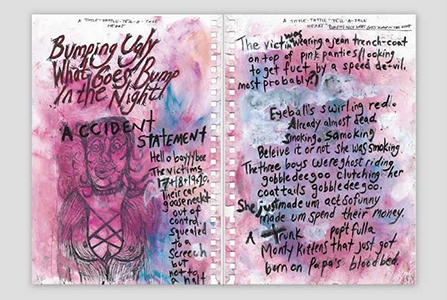 A TITTLE-TATTLE-TELL-A-TALE
HEART
Bumping Ugly
What Goes Bump
In the Night!
ACCIDENT
STATEMENT
Hello bayyybee
The victims
17+18+19+20.
Their car
gooseneckt
out of
control
squealed
to a
Screech
but
not to
a halt
A TITTLE-TATTLE-TELL-A-TALE
HEART
The victim was wearing a jean trench-coat
on top of pink panties looking
to get fuct by a speed de-vil.
most probably?
Eyeballs swirling red.
Already almost dead.
Smoking. Samoking
Beleive it or not she was smoking.
The three boys were ghost riding
gobbledeegoo clutching her
coattails gobbledeegoo.
She just made um act so funny
made um spend their money.
A trunk popt fulla
Monty Kittens that just got
born on Papa's bloodbed.